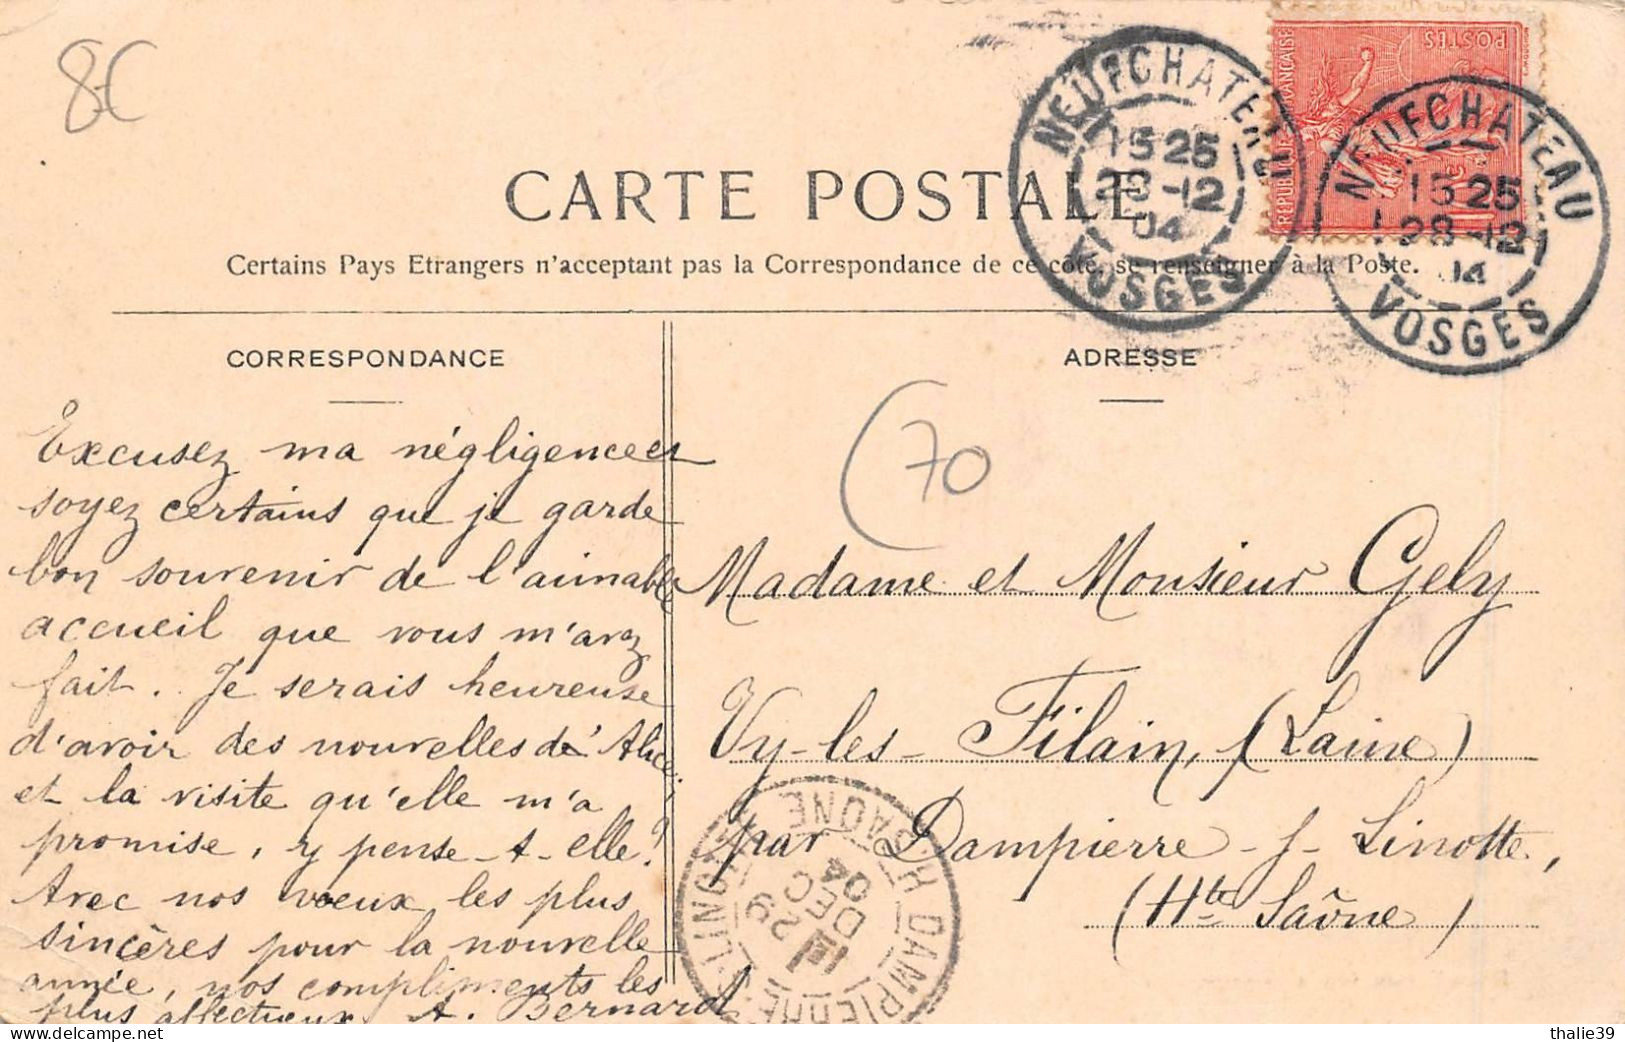 8€
POSTES
REPUBLIQUE FRANÇAISE
NEUFCHATEAU
15 25
28-12
04
VOSGES
NEUFCHATEAU
15 25
28-12
04
VOSGES
CARTE POSTALE
Certains Pays Etrangers n'acceptant pas la Correspondance de ce côté, se renseigner à la Poste.
CORRESPONDANCE
Excusez ma négligence et
soyez certains que je garde
bon souvenir de l'aimable
accueil que vous m'avez
fait. Je serais heureuse
d'avoir des nouvelles de Alice
et la visite qu'elle m'a
promise, y pense-t-elle?
Avec nos voeux les plus
sincères pour la nouvelle
année, nos compliments les
plus affectueux A. Bernard
ADRESSE
(70
Madame et Monsieur Gely
Vy-les-Filain, (Laine)
par Dampierre-s-Linotte,
(Hte Saône)
DAMPIERRE S. LINOTTE
H. SAONE
29
DEC
04
thalie39